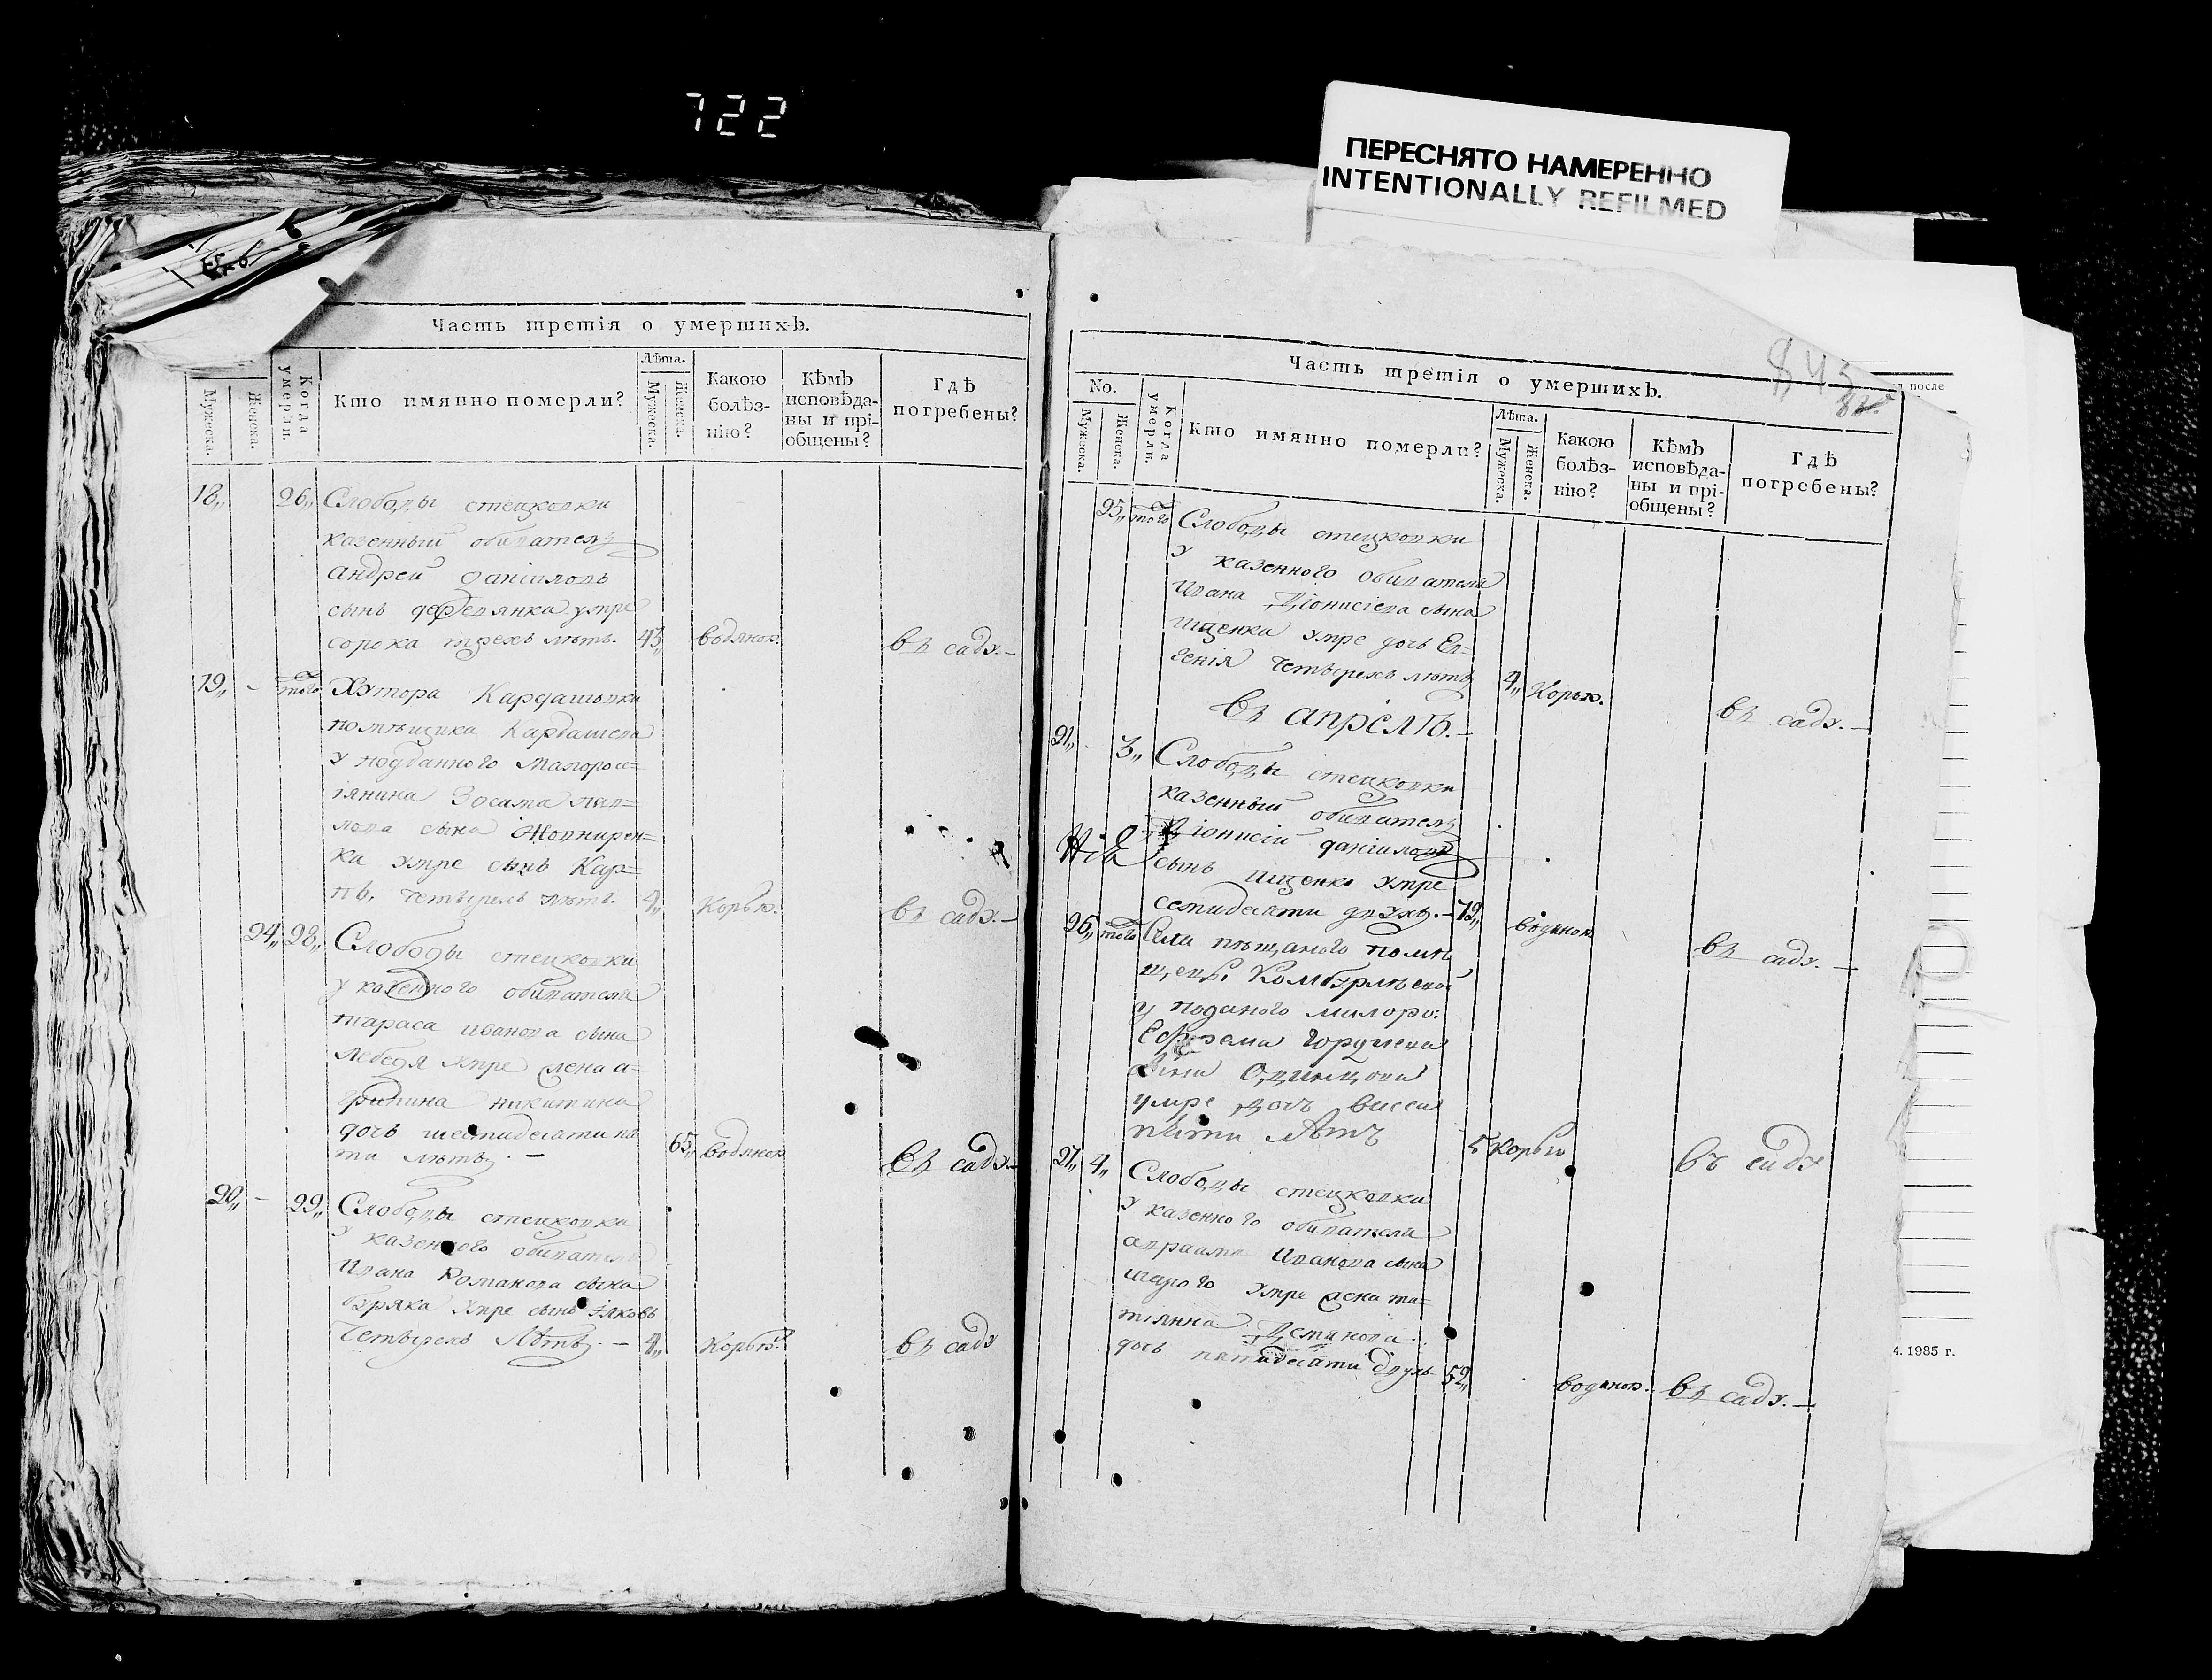 722
ПЕРЕСНЯТО НАМЕРЕННО
INTENTIONALLY REFILMED
Часть третія о умершихъ.
Мужеска.
Женска.
Когда умерли.
Кто имянно померли?
Лѣта.
Мужеска.
Женска.
Какою болѣз-
нію?
Кѣмъ
исповѣда-
ны и прі-
общены?
Гдѣ
погребены?
18,, 26,, Слободы стецковки
казенный обиватель
андрей даніиловъ
сынъ умре
сорока трехъ лѣтъ. 43,, водяною въ саду.—
19,, - того Хутора Кардашовки
помѣщика Кардашева
у подданного малорос=
іянина Зосима пав=
лова сына
ка умре сынъ Кар=
пъ, четырехъ лѣтъ. 4,, Корью. въ саду.—
24,, 28,, Слободы стецковки
у казенного обивателя
тараса иванова сына
лебедя умре жена а=
грипина никитина
дочь шестидесяти пя
ти лѣтъ. — 65,, водяною въ саду.—
20,, — 29,, Слободы стецковки
у казенного обивателя
Ивана Романова сына
буряка умре сынъ іяковъ
Четырехъ Лѣтъ. — 4,, Корью въ саду
Часть третія о умершихъ.
845
No.
Мужеска.
Женска.
Когда умерли.
Кто имянно померли?
Лѣта.
Мужеска.
Женска.
Какою
болѣз-
нію?
Кѣмъ
исповѣда-
ны и прі-
общены?
Гдѣ
погребены?
л после
25,, того Слободы стецковки
у казенного обивателя
Ивана Діонисіева сына
ищенка умре дочь Ев=
генія четырехъ лѣтъ 4,, Корью. въ саду.—
въ апрелѣ.—
21,, - 3,, Слободы стецковки
казенный обиватель
Діонисій даніиловъ
сынъ ищенко умре
семидесяти двухъ. — 72,, водяною въ саду.—
26,, того Села пѣщаного помѣ
щицы
у поданого малоро:
Ефрема Гордиева
сына Одинцова
умре дочь
пяти лѣтъ 5 корью въ саду
27,, 4,, Слободы стецковки
у казенного обивателя
авраама Иванова сына
умре жена та=
тіянна Демидова
дочь пятидесяти двухъ 52,, водяною. въ саду.—
4. 1985 г.